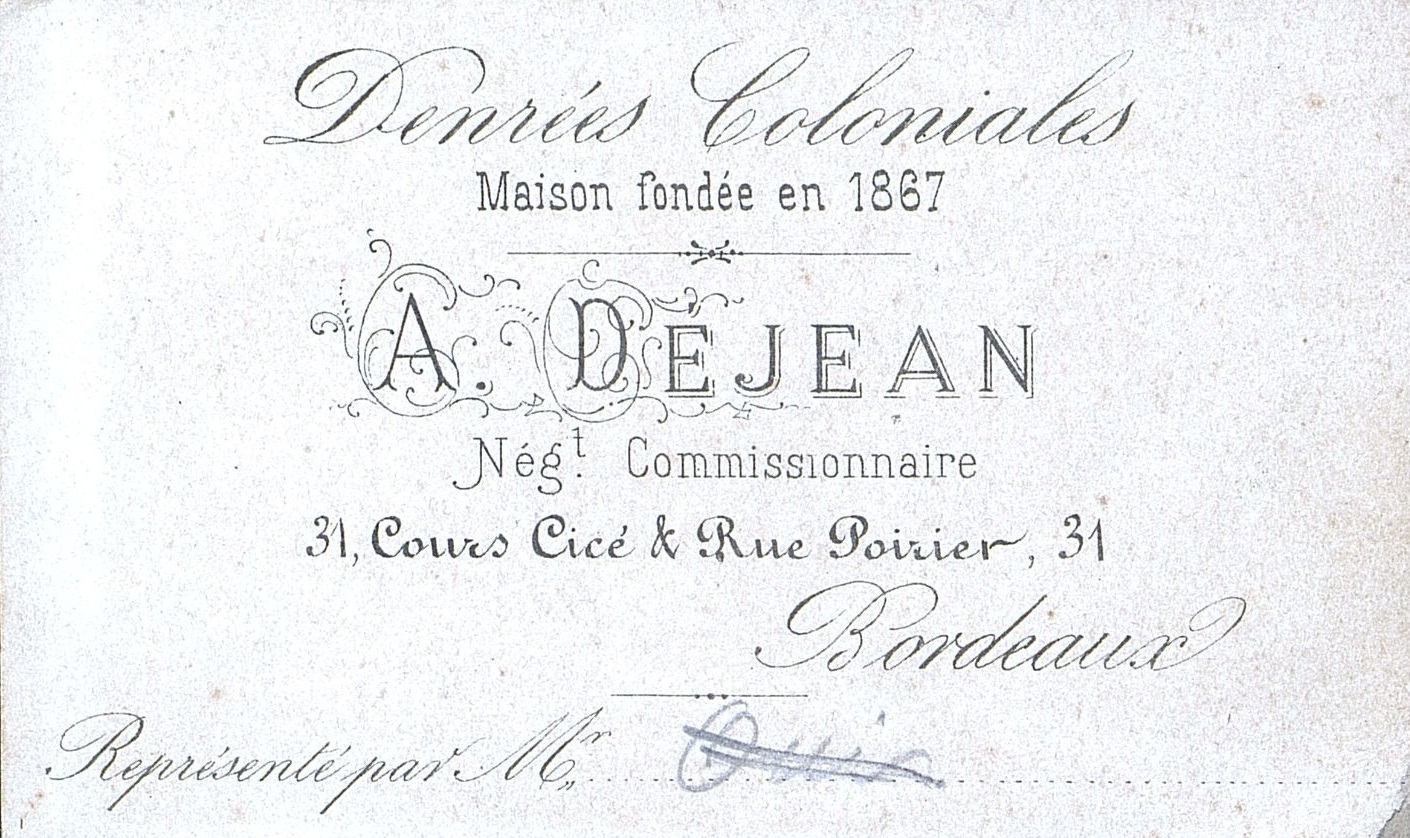 Denrées Coloniales
Maison fondée en 1867
A. DÉJEAN
Négt. Commissionnaire
31, Cours Cicé & Rue Poirier, 31
Bordeaux
Représenté par Mr